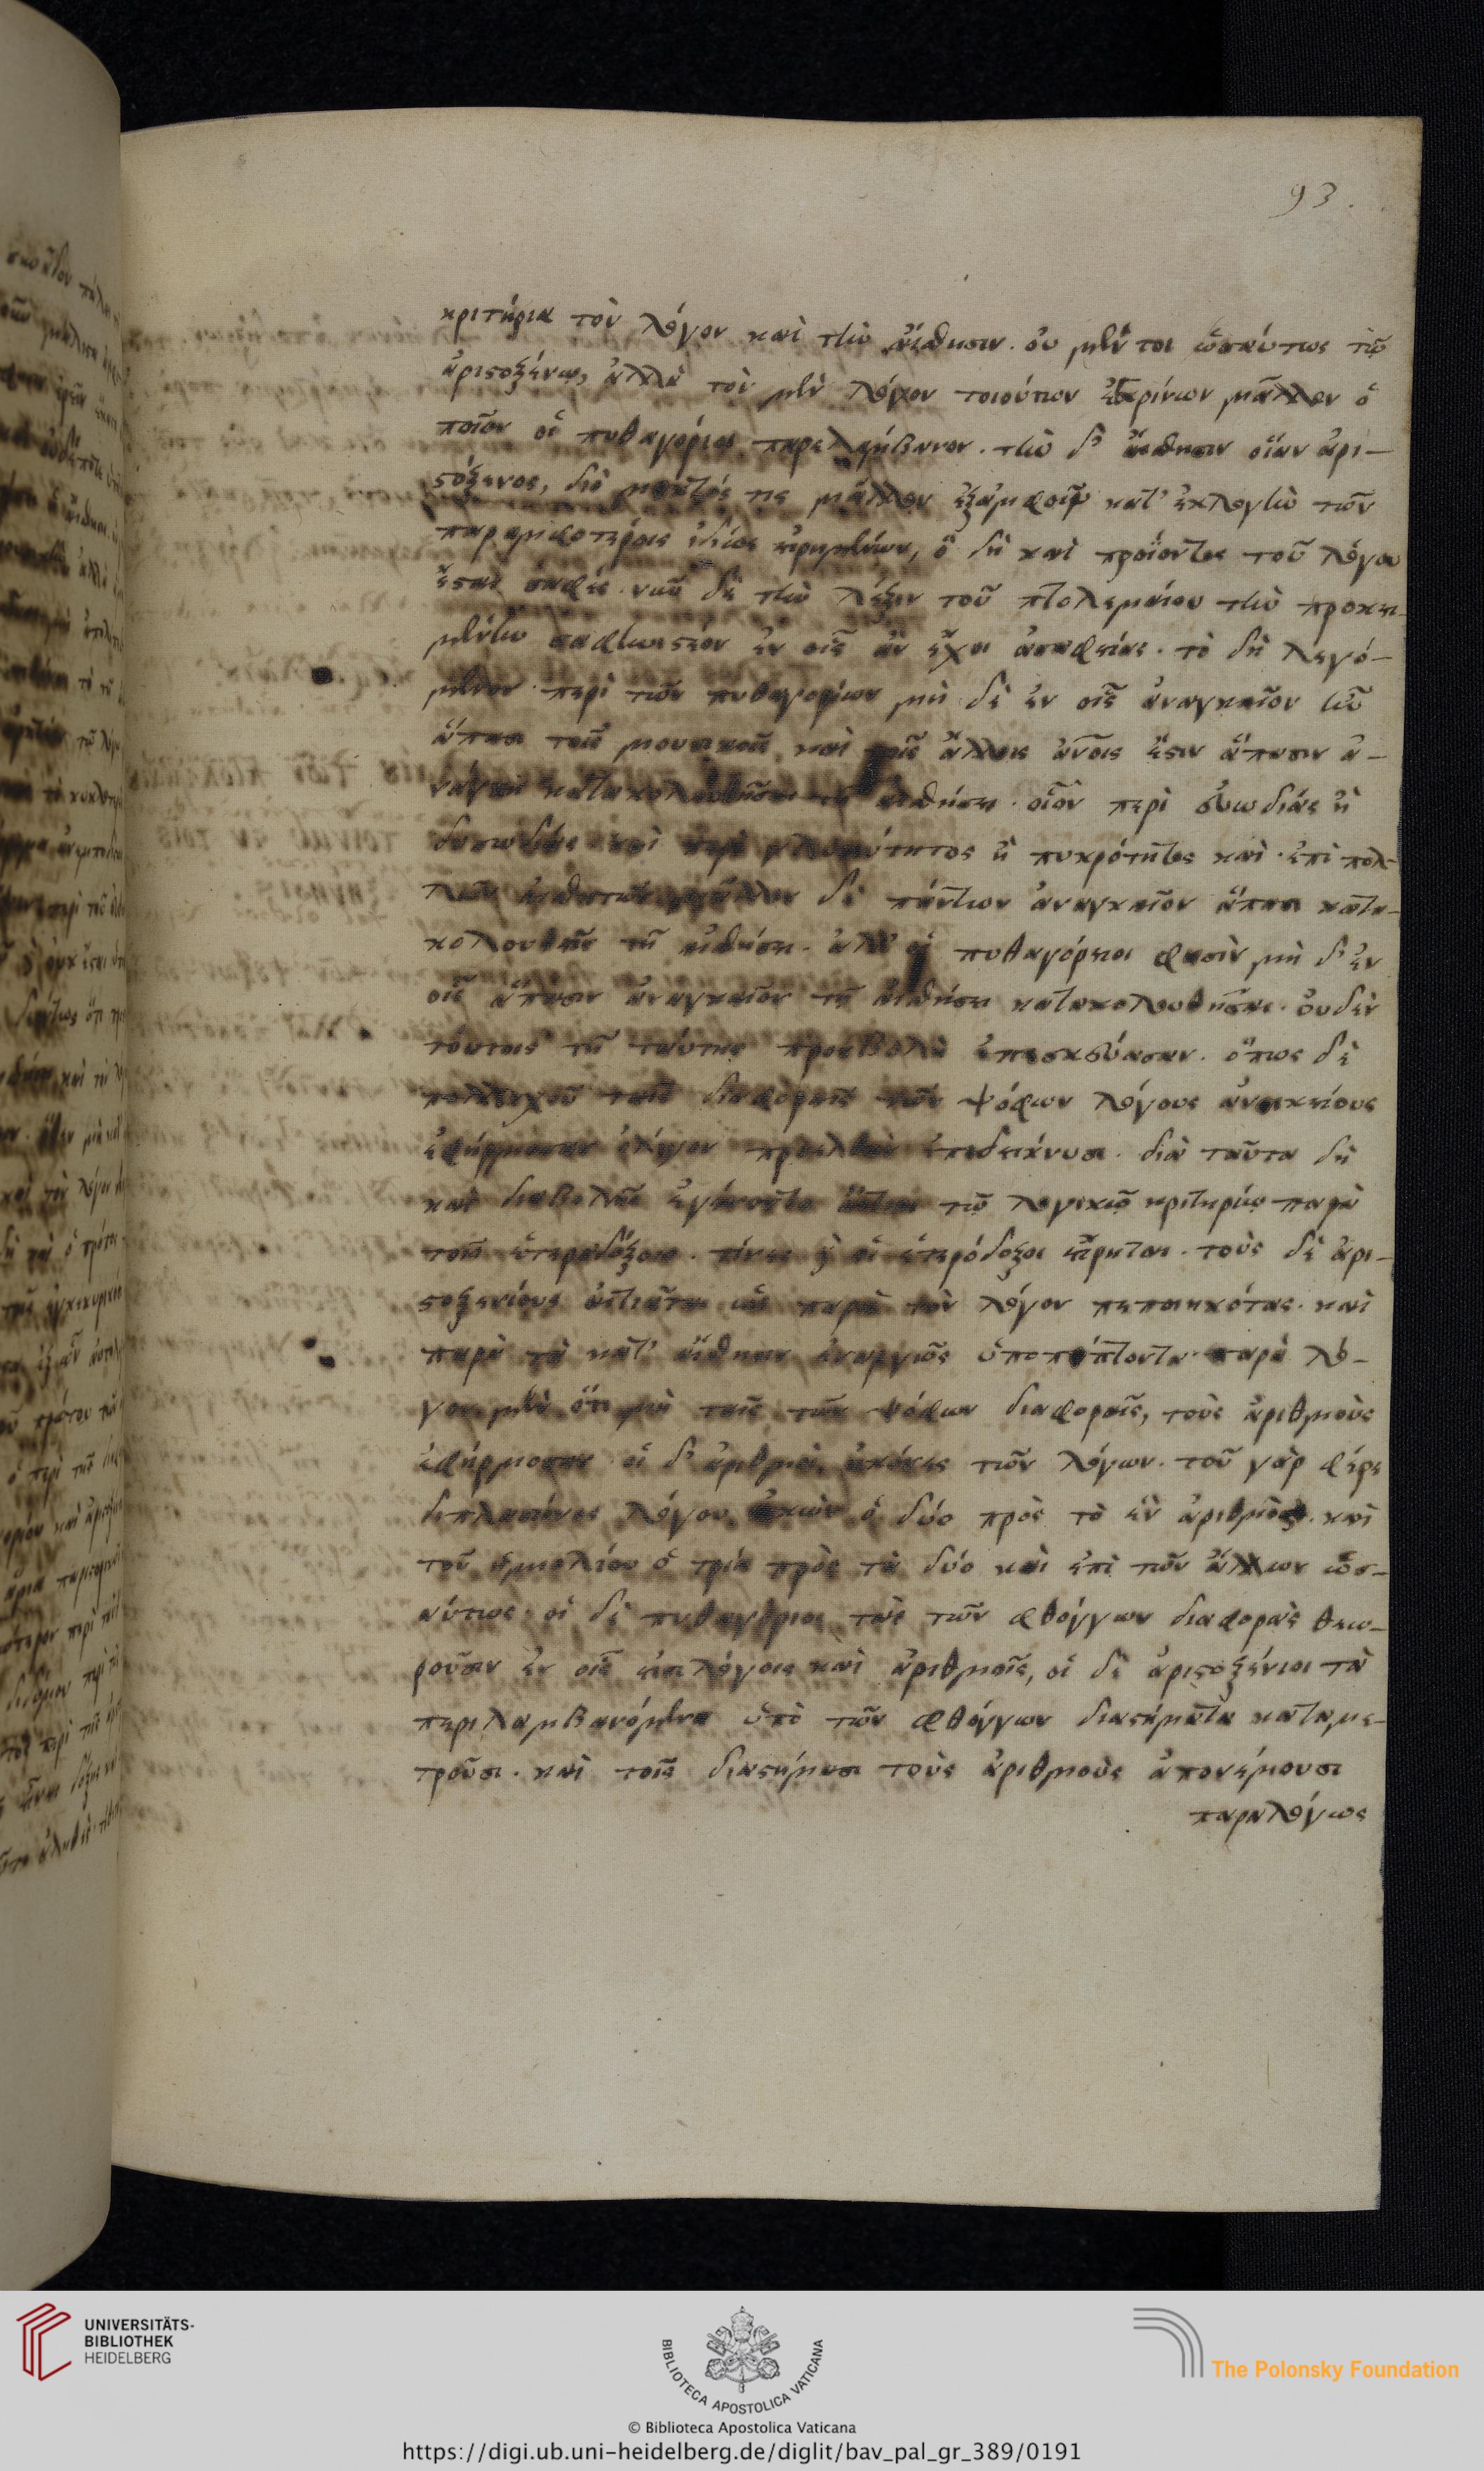 93.
κριτήρια τὸν λόγον καὶ τὴν αἴσθησιν. οὐ μέν τοι ὡσαύτως τῷ
ἀριστοξένῳ, ἀλλὰ τὸν μὲν λόγον τοιοῦτον ἐκρίνων μᾶλλον ὁ
ποῖον οἱ πυθαγόριοι παρελάμβανον. τὴν δ' αἴσθησιν οἵαν ἀρι-
στόξενος, διὸ μικτός τις μᾶλλον ἐξαμφοῖν κατ' ἐκλογὴν τῶν
παραμφοτέροις ἰδίως εἰρημένων, ὃ δὴ καὶ προϊόντος τοῦ λόγου
ἔσται σαφές. νῦν δὲ τὴν λέξιν τοῦ πτολεμαίου τὴν προκει-
μένην σαφηνιστέον ἐν οἷς ἂν ἔχοι ἀσαφείας. τὸ δὴ λεγό-
μενον περὶ τῶν πυθαγορίων μὴ δὲ ἐν οἷς ἀναγκαῖον ἦν
ἅπασι τοῖς μουσικοῖς καὶ τοῖς ἄλλοις ἀνοις ἔστιν ἅπασιν ἀ-
νάγκη κατακολουθῆσαι τῇ αἰσθήσει. οἷον περὶ εὐωδίας ἢ
δυσωδίας καὶ περὶ γλυκύτητος ἢ πικρότητος καὶ ἐπὶ πολ-
λῶν αἰσθητῶν μᾶλλον δὲ πάντων ἀναγκαῖον ἅπασι κατα-
κολουθεῖν τῇ αἰσθήσει. ἀλλ' οἱ πυθαγόρειοι φασὶν μὴ δ' ἐν
οἷς ἅπασιν ἀναγκαῖον τῇ αἰσθήσει κατακολουθῆσαι. οὐδὲν
τούτοις τῇ ταύτης προσβολῇ ἐπεσκεύασαν. ὅπως δὲ
πολλαχοῦ ταῖς διαφοραῖς τῶν ψόφων λόγους ἀνοικείους
ἐφήρμοσαν ὀλίγον προελθὼν ἐπιδείκνυσι. διὰ ταῦτα δὴ
καὶ διαβολῆς ἐγένοντο αἴτιοι τῷ λογικῷ κριτηρίῳ παρὰ
τοῖς ἑτεροδόξοις. τίνες δ' οἱ ἑτερόδοξοι εἴρηται. τοὺς δὲ ἀρι-
στοξενίους αἰτιᾶται ὡς παρὰ τὸν λόγον πεποιηκότας. καὶ
παρὰ τὰ κατ' αἴσθησιν ἐναργῶς ὑποπίπτοντα. παρὰ λό-
γον μὲν ὅτι μὴ ταῖς τῶν ψόφων διαφοραῖς, τοὺς ἀριθμοὺς
ἐφήρμοσαν οἱ δ' ἀριθμοὶ εἰκόνες τῶν λόγων. τοῦ γὰρ φέρε
διπλασίονος λόγου εἰκὼν ὁ δύο πρὸς τὸ ἓν ἀριθμὸς. καὶ
τοῦ ἡμιολίου ὁ τρία πρὸς τὰ δύο καὶ ἐπὶ τῶν ἄλλων ὡσ-
αύτως. οἱ δὲ πυθαγόριοι τὰς τῶν φθόγγων διαφορὰς θεω-
ροῦσιν ἐν οἷς εἰσι λόγοις καὶ ἀριθμοῖς, οἱ δὲ ἀριστοξένιοι τὰ
περιλαμβανόμενα ὑπὸ τῶν φθόγγων διαστήματα καταμε-
τροῦσι. καὶ τοῖς διαστήμασι τοὺς ἀριθμοὺς ἀπονέμουσι
παραλόγως
UNIVERSITÄTS-
BIBLIOTHEK
HEIDELBERG
BIBLIOTECA APOSTOLICA VATICANA
The Polonsky Foundation
© Biblioteca Apostolica Vaticana
https://digi.ub.uni-heidelberg.de/diglit/bav_pal_gr_389/0191